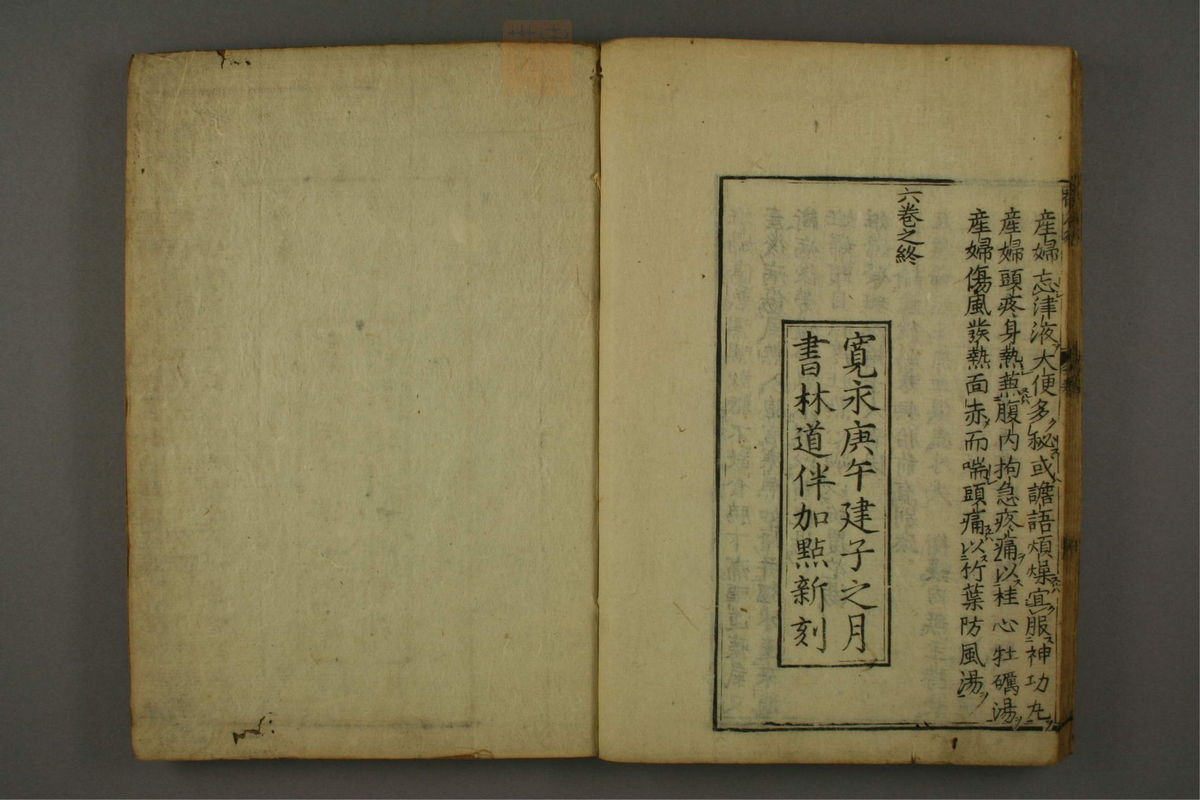 産婦忘津液大便多秘或譫語煩燥宜服神功丸
産婦頭疼身熱兼腹内拘急疼痛以桂心牡礪湯
産婦傷風発熱面赤而喘頭痛以竹葉防風湯
六巻之終
寛永庚午建子之月
書林道伴加點新刻